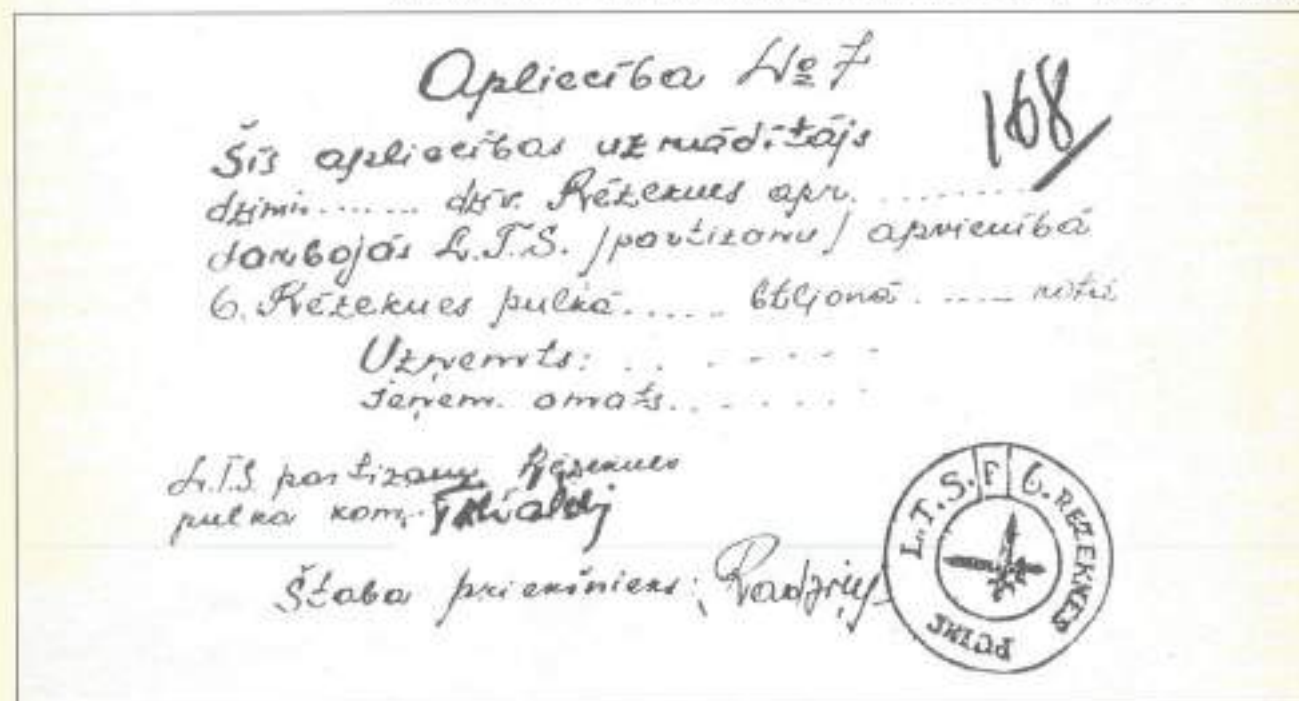 Apliecība № 7
168
Šīs apliecības uzrādītājs
dzimis ...... dzīv. Rēzeknes apr. ..........
darbojās L.T.S. /partizanu/ apvienibā
6. Rēzeknes pulkā ...... btljonā ...... rotā
Uzņemts: . . . . . . .
Ieņem. amats. . . . . . .
L.T.S. partizanu Rēzeknes
pulka kom.
Štaba priekšnieks:
L.T.S. P 6. REZEKNES
PULKS